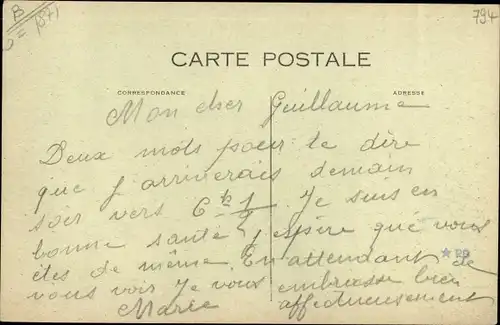 B
1871
794
CARTE POSTALE
CORRESPONDANCE
ADRESSE
Mon cher Guillaume
Deux mots pour te dire
que j'arriverais demain
soir vers 6h 1/2. Je suis en
bonne santé j'espère que vous
êtes de même. En attendant de
vous voir je vous embrasse bien
affectueusement
Marie